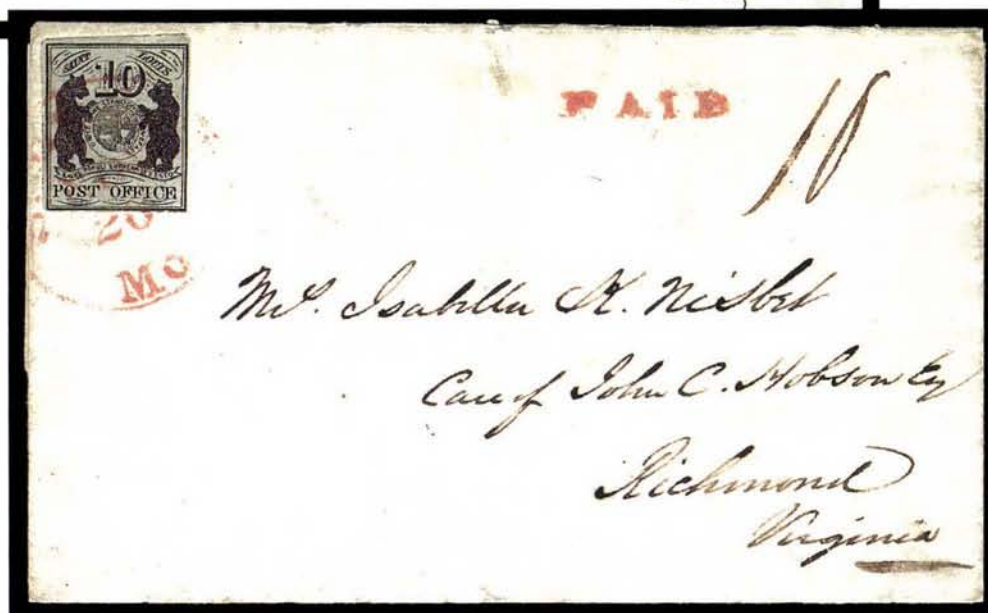 SAINT LOUIS
10
POST OFFICE
PAID
10
20
MO
Mrs. Isabella H. Nisbet
Care of John C. Hobson Esq
Richmond
Virginia